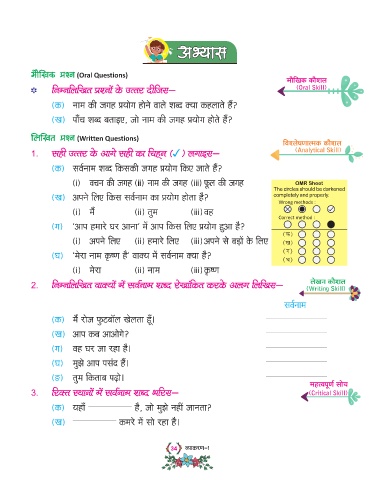 अभ्यास
मौखिक प्रश्न (Oral Questions)
मौखिक कौशल
(Oral Skill)
निम्नलिखित प्रश्नों के उत्तर दीजिस–
(क) नाम की जगह प्रयोग होने वाले शब्द क्या कहलाते हैं?
(ख) पाँच शब्द बताइए, जो नाम की जगह प्रयोग होते हैं?
लिखित प्रश्न (Written Questions)
विश्लेषणात्मक कौशल
(Analytical Skill)
1. सही उत्तर के आगे सही का चिह्न (✓) लगाइस–
(क) सर्वनाम शब्द किसकी जगह प्रयोग किए जाते हैं?
(i) वचन की जगह (ii) नाम की जगह (iii) फूल की जगह
(ख) अपने लिए किस सर्वनाम का प्रयोग होता है?
(i) मैं (ii) तुम (iii) वह
(ग) 'आप हमारे घर आना' में आप किस लिए प्रयोग हुआ है?
(i) अपने लिए (ii) हमारे लिए (iii) अपने से बड़ों के लिए
(घ) 'मेरा नाम कृष्ण है' वाक्य में सर्वनाम क्या है?
(i) मेरा (ii) नाम (iii) कृष्ण
OMR Sheet
The circles should be darkened
completely and properly.
Wrong methods :
Correct method :
(क)
(ख)
(ग)
(घ)
2. निम्नलिखित वाक्यों में सर्वनाम शब्द रेखांकित करके अलग लिखिस–
लेखन कौशल
(Writing Skill)
सर्वनाम
(क) मैं रोज फुटबॉल खेलता हूँ।
(ख) आप कब आओगे?
(ग) वह घर जा रहा है।
(घ) मुझे आप पसंद हैं।
(ङ) तुम किताब पढ़ो।
महत्वपूर्ण सोच
(Critical Skill)
3. रिक्त स्थानों में सर्वनाम शब्द भरिस–
(क) यहाँ ———— है, जो मुझे नहीं जानता?
(ख) ———— कमरे में सो रहा है।
34 व्याकरण-1